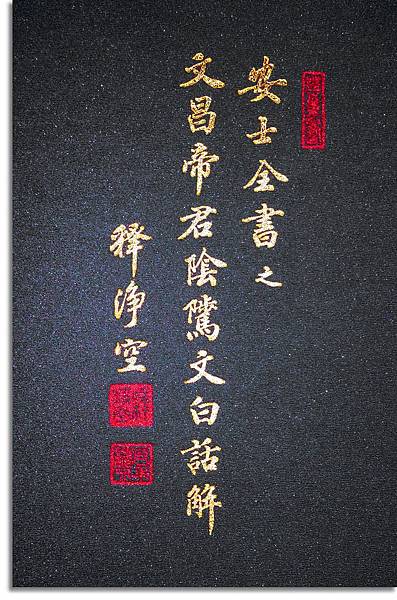 安士全書之
文昌帝君陰騭文白話解
釋淨空